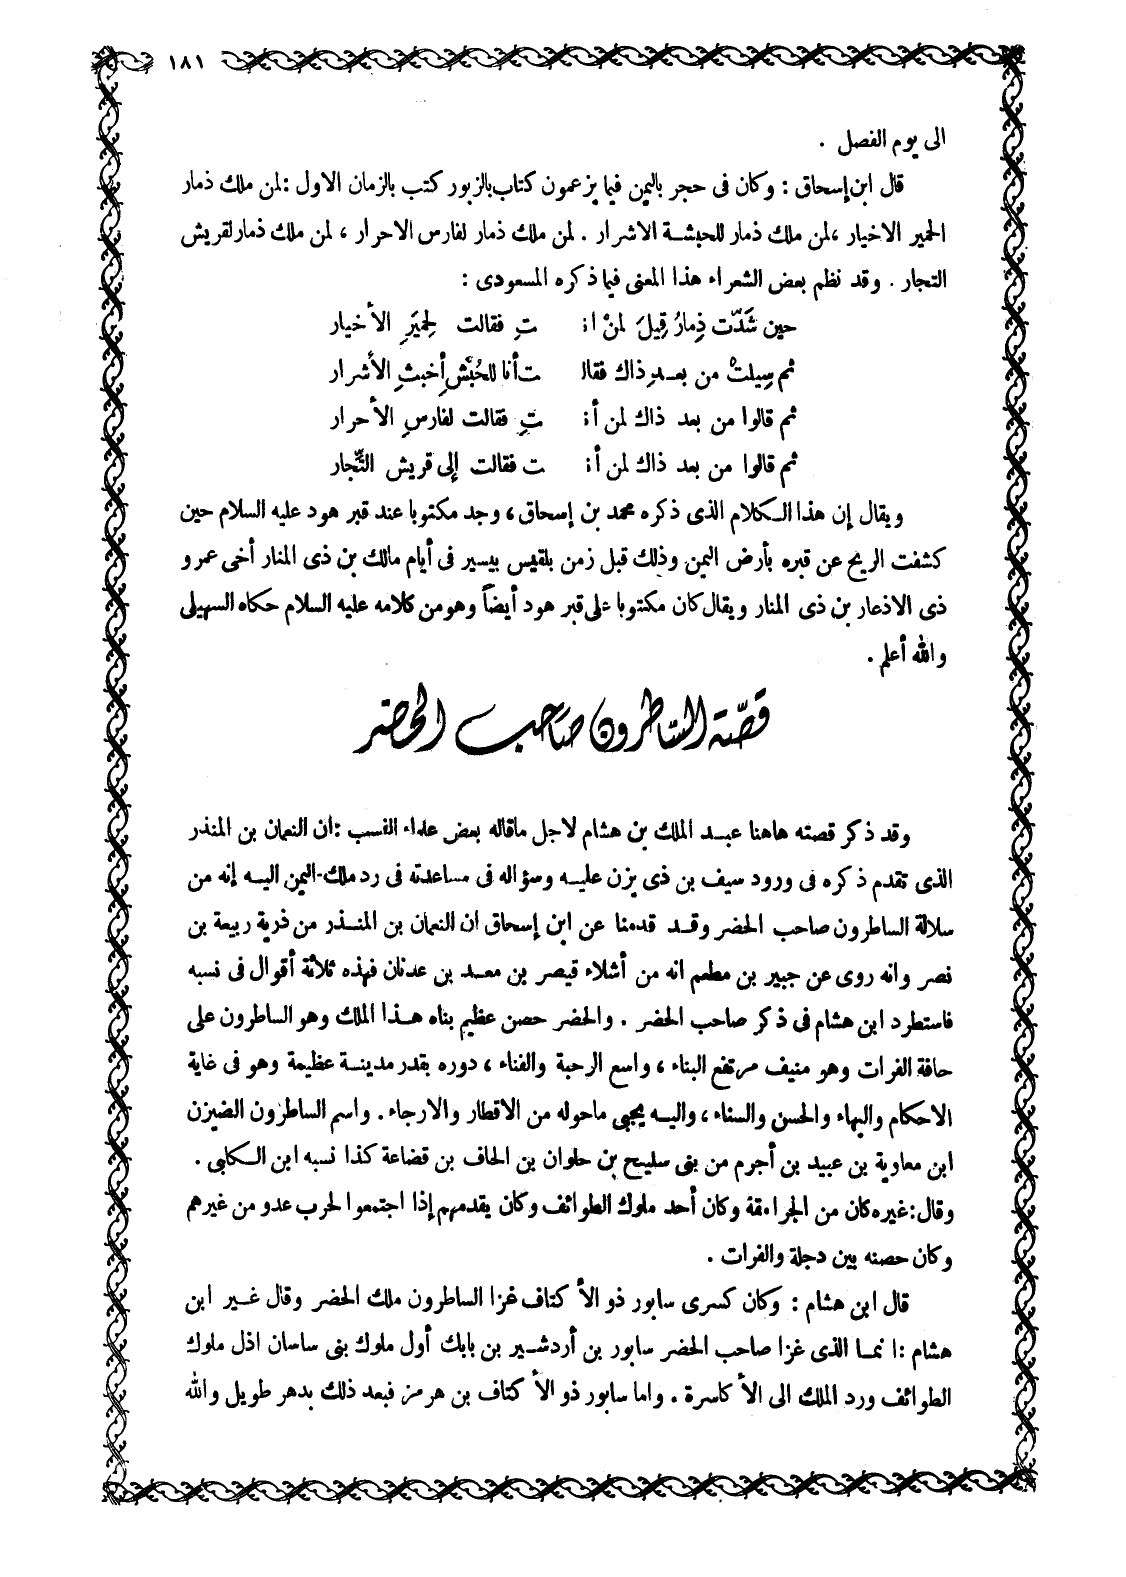 ١٨١
الى يوم الفصل .
قال ابن إسحاق : وكان فى حجر باليمن فيما يزعمون كتاب بالزبور كتب بالزمان الاول : لمن ملك ذمار
الحمير الاخيار ، لمن ملك ذمار للحبشة الاشرار . لمن ملك ذمار لفارس الاحرار ، لمن ملك ذمار لقريش
التجار . وقد نظم بعض الشعراء هذا المعنى فيما ذكره المسعودى :
حين شَدّت ذِمارُ قِيلَ لمنْ انـ تِ فقالت لِحميَرِ الأخيار
ثم سِيلتْ من بعـد ذاك فقالـ ت أنا للحُبْش أخبثِ الأشرار
ثم قالوا من بعد ذاك لمن أنـ تِ فقالت لفارسِ الأحرار
ثم قالوا من بعد ذاك لمن أنـ ت فقالت إلى قريش التّجار
ويقال إن هذا الـكلام الذى ذكره محمد بن إسحاق ، وجد مكتوبا عند قبر هود عليه السلام حين
كشفت الريح عن قبره بأرض اليمن وذلك قبل زمن بلقيس بيسير فى أيام مالك بن ذى المنار أخى عمرو
ذى الاذعار بن ذى المنار ويقال كان مكتوبا على قبر هود أيضاً وهو من كلامه عليه السلام حكاه السهيلى
والله أعلم .
قصّة السّاطرون صَاحب الحضر
وقد ذكر قصته هاهنا عبـد الملك بن هشام لاجل ما قاله بعض علماء النسب : ان النعمان بن المنذر
الذى تقدم ذكره فى ورود سيف بن ذى يزن عليـه وسؤاله فى مساعدته فى رد ملك اليمن اليـه إنه من
سلالة الساطرون صاحب الحضر وقـد قدمنا عن ابن إسحاق ان النعمان بن المنـذر من ذرية ربيعة بن
نصر وانه روى عن جبير بن مطعم انه من أشلاء قيصر بن معـد بن عدنان فهذه ثلاثة أقوال فى نسبه
فاستطرد ابن هشام فى ذكر صاحب الحضر . والحضر حصن عظيم بناه هـذا الملك وهو الساطرون على
حافة الفرات وهو منيف مرتفع البناء ، واسع الرحبة والفناء ، دوره بقدر مدينـة عظيمة وهو فى غاية
الاحكام والبهاء والحسن والسناء ، واليـه يجبى ما حوله من الاقطار والارجاء . واسم الساطرون الضيزن
ابن معاوية بن عبيد بن أجرم من بنى سليح بن حلوان بن الحاف بن قضاعة كذا نسبه ابن الـكلبى .
وقال : غيره كان من الجرامقة وكان أحد ملوك الطوائف وكان يقدمهم إذا اجتمعوا لحرب عدو من غيرهم
وكان حصنه بين دجلة والفرات .
قال ابن هشام : وكان كسرى سابور ذو الأكتاف غزا الساطرون ملك الحضر وقال غـير ابن
هشام : انمـا الذى غزا صاحب الحضر سابور بن أردشـير بن بابك أول ملوك بنى ساسان اذل ملوك
الطوائف ورد الملك الى الأكاسرة . واما سابور ذو الأكتاف بن هرمز فبعد ذلك بدهر طويل والله